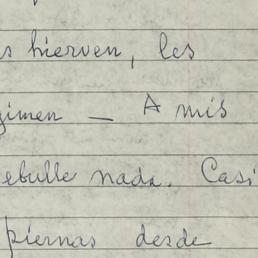 s hierven, les
gimen — A mis
ebulle nada. Casi
piernas desde